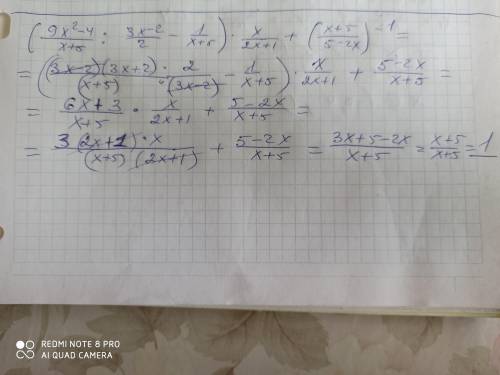 (9x²-4/x+5 : 3x-2/2 - 1/x+5) · x/2x+1 + (x+5/5-2x)⁻¹ =
= ((3x-2)(3x+2) · 2/(x+5) · (3x-2) - 1/x+5) · x/2x+1 + 5-2x/x+5 =
= 6x+3/x+5 · x/2x+1 + 5-2x/x+5 =
= 3(2x+1) · x/(x+5)(2x+1) + 5-2x/x+5 = 3x+5-2x/x+5 = x+5/x+5 = 1
REDMI NOTE 8 PRO
AI QUAD CAMERA